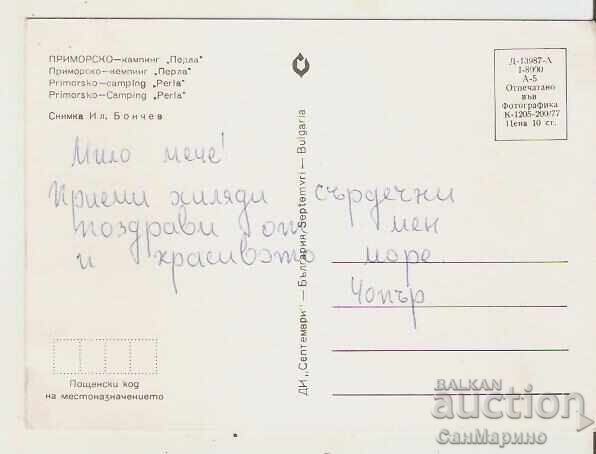 ПРИМОРСКО—кампинг „Перла"
Приморско—кемпинг „Перла"
Primorsko—camping „Perla"
Primorsko—Camping „Perla"
Снимка Ил. Бончев
Д-13987-А
I-8090
А-5
Отпечатано
във
Фотографика
К-1205-200/77
Цена 10 ст.
Мило мече!
Приеми хиляди сърдечни
поздрави от мен
и красивото море.
Чопър
ДИ „Септември" — България, Septemvri — Bulgaria
Пощенски код
на местоназначението
BALKAN
auction
СанМарино